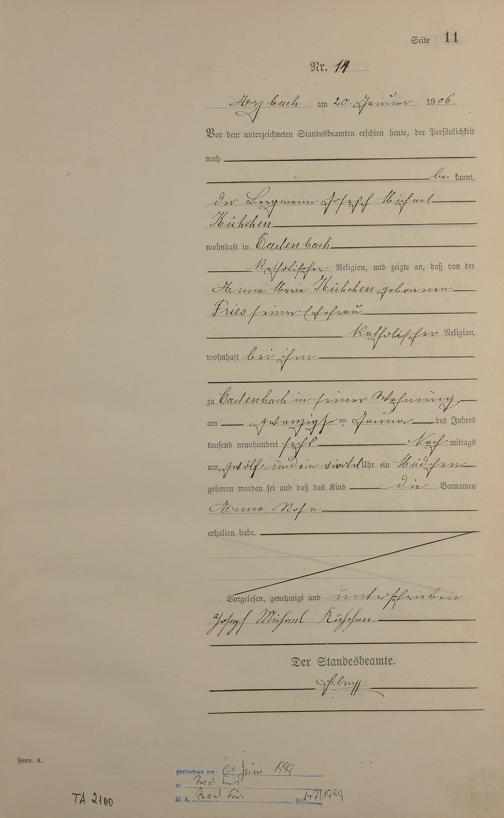 Seite 11
Nr. 14
Arzbach am 20. Januar 1906.
Vor dem unterzeichneten Standesbeamten erschien heute, der Persönlichkeit
nach
be kannt,
der Bergmann Joseph Michael
Kühchen
wohnhaft in Cadenbach
katholischer Religion, und zeigte an, daß von der
Anna Maria Kühchen geborenen
Fries seiner Ehefrau
katholischer Religion,
wohnhaft bei ihm
zu Cadenbach in seiner Wohnung
am zwanzigsten Januar des Jahres
tausend neunhundert sechs Nach mittags
um zwölf und ein viertel Uhr ein Mädchen
geboren worden sei und daß das Kind die Vornamen
Anna Rosa
erhalten habe.
Vorgelesen, genehmigt und unterschrieben
Joseph Michael Kühchen.
Der Standesbeamte.
Form. A.
gestorben am: 01 Juni 1999
in Bad Ems
St. A. Bad Ems Nr. /1999
TA 2100